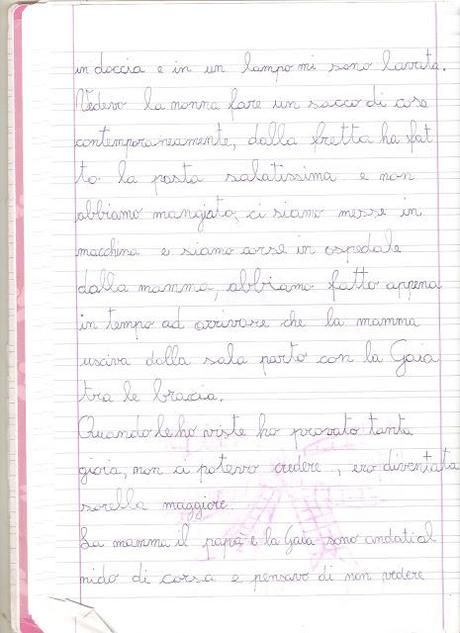 in doccia e in un lampo mi sono lavata.
Vedevo la nonna fare un sacco di cose
contemporaneamente, dalla fretta ha fat
to la pasta salatissima e non
abbiamo mangiato, ci siamo messe in
macchina e siamo corse in ospedale
dalla mamma, abbiamo fatto appena
in tempo ad arrivare che la mamma
usciva dalla sala parto con la Gaia
tra le bracia.
Quando le ho viste ho provato tanta
gioia, non ci potevo credere, ero diventata
sorella maggiore.
La mamma il papà e la Gaia sono andati al
nido di corsa e pensavo di non vedere